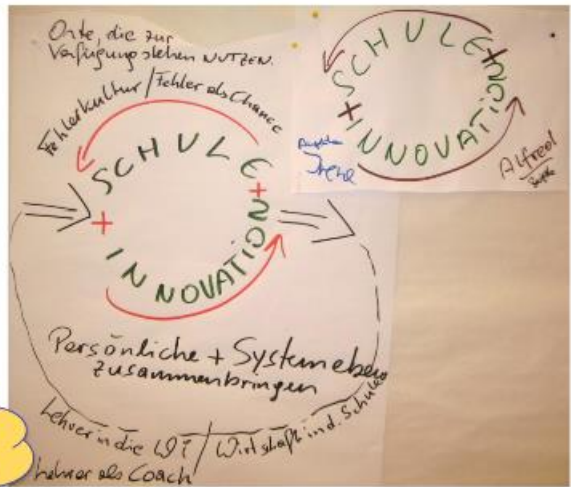 Orte, die zur
Verfügung stehen NUTZEN.
Fehlerkultur / Fehler als Chance
SCHULE
+
+
INNOVATION
Persönliche + Systemebene
zusammenbringen
Lehrer in die WI / Wirtschaft in d. Schule
Lehrer als Coach
SCHULE
+
+
INNOVATION
Irene
Alfred